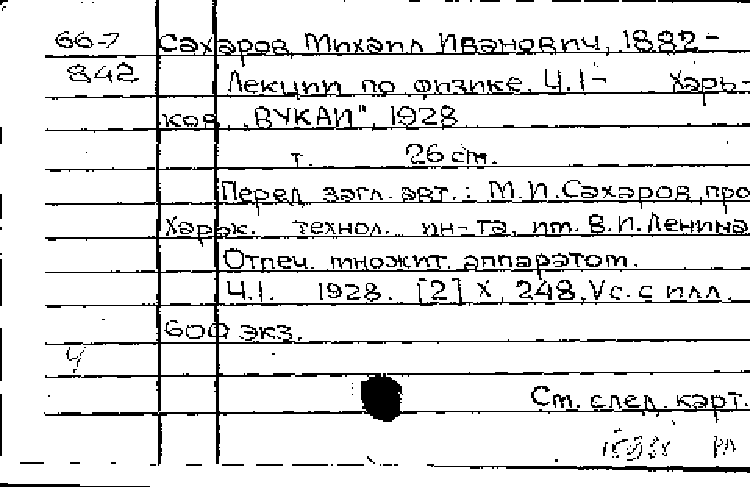 66-7 Сахаров, Михаил Иванович, 1882-
842 Лекции по физике. Ч.1- Харь-
ков, „ВУКАИ", 1928
т. 26 см.
Перед загл. авт.: М.И.Сахаров, про
Харьк. технол. ин-та, им. В.И.Ленина
Отпеч. множит. аппаратом.
Ч.1. 1928. [2] X, 248, V с. с илл.
600 экз.
4
См. след. карт.